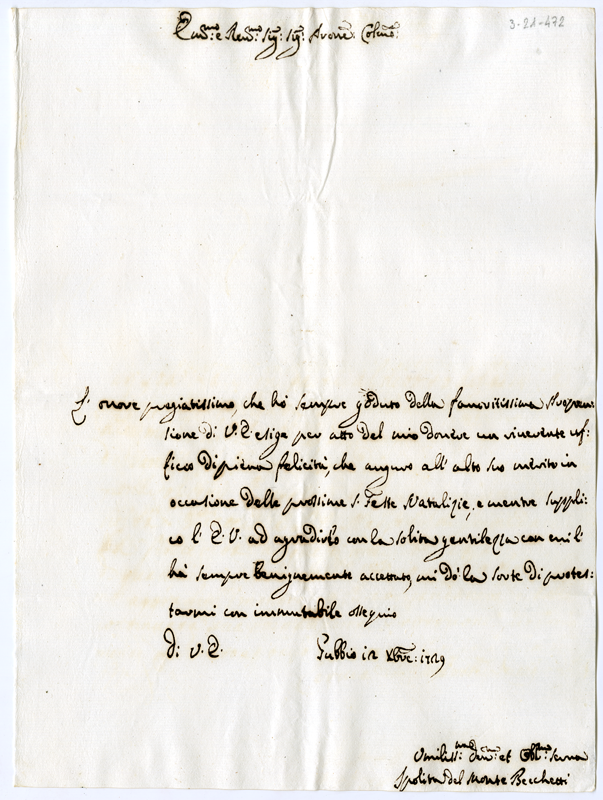 3-21-472
Em:mo e Rev:mo Sig: Sig: Pron̄e: Colmo:
L'onore pregiatissimo, che hò sempre goduto della favoritissima Propen-
sione di V. E. esige per atto del mio dovere un riverente uf-
ficio di piena felicità, che auguro all'alto suo merito in
occasione delle prossime S. Feste Natalizie, e mentre suppli-
co l'E. V. ad agradirlo con la solita gentilezza con cui l'
hà sempre benignamente accettato, mi dò la sorte di protes-
tarmi con immutabile ossequio
Di V. E. Gubbio 12 Xbre: 1729
Umiliss:ma Dev:ma et Obl:ma Serva
Ipolita del Monte Becchetti